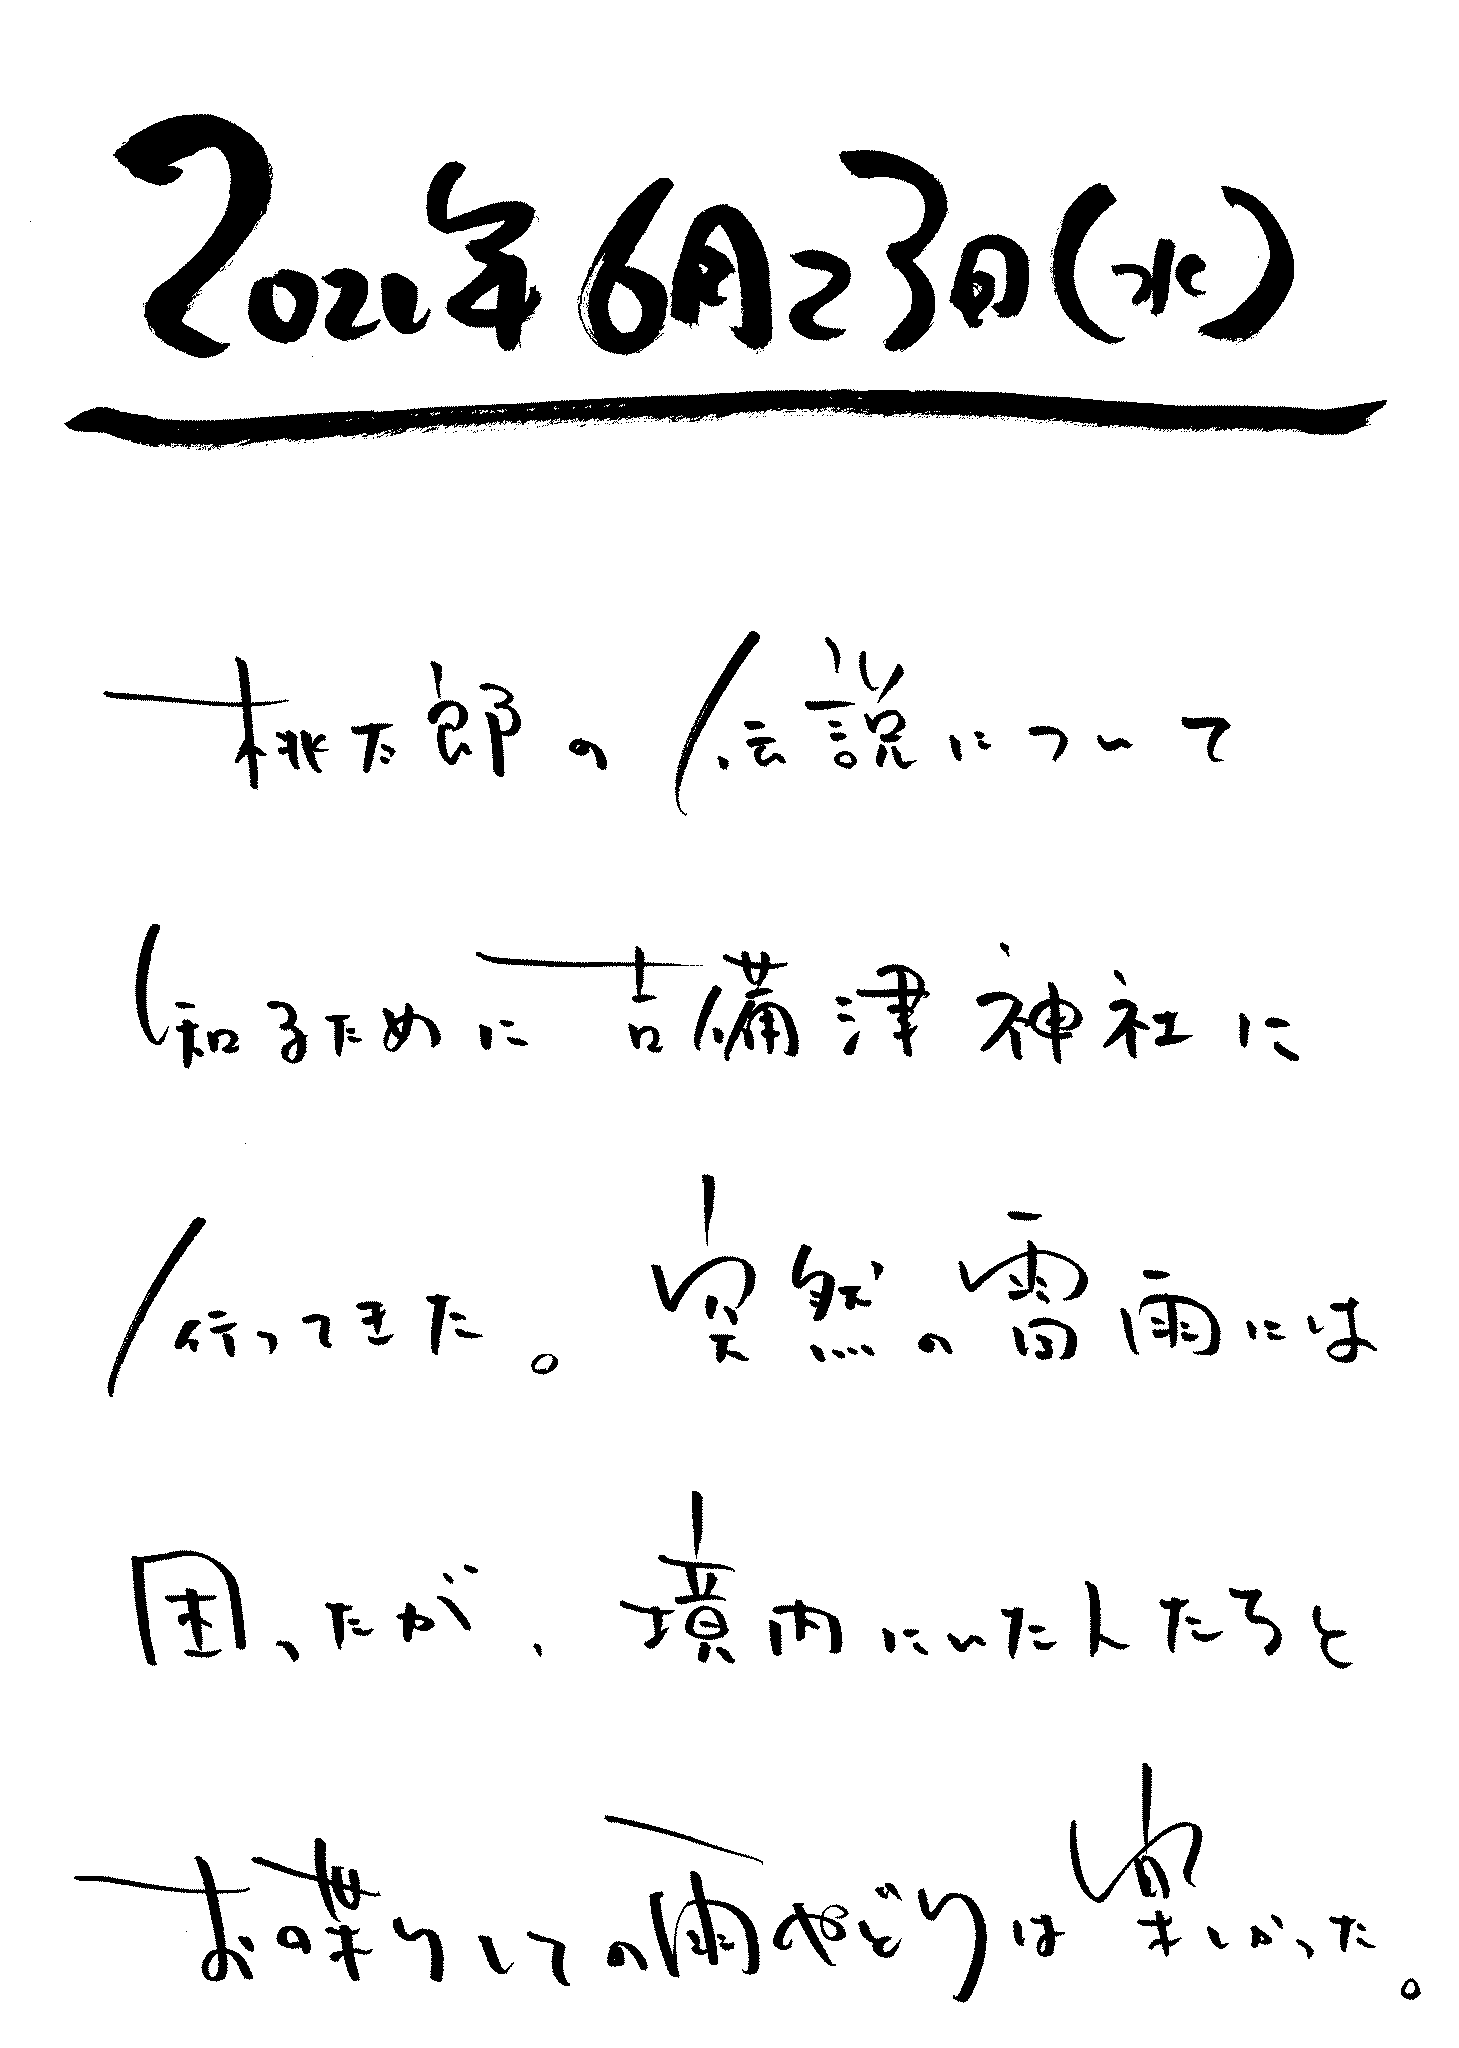 2021年6月23日(水)
桃太郎の伝説について
知るために吉備津神社に
行ってきた。突然の雷雨には
困ったが、境内にいた人たちと
お喋りしての雨やどりは楽しかった。